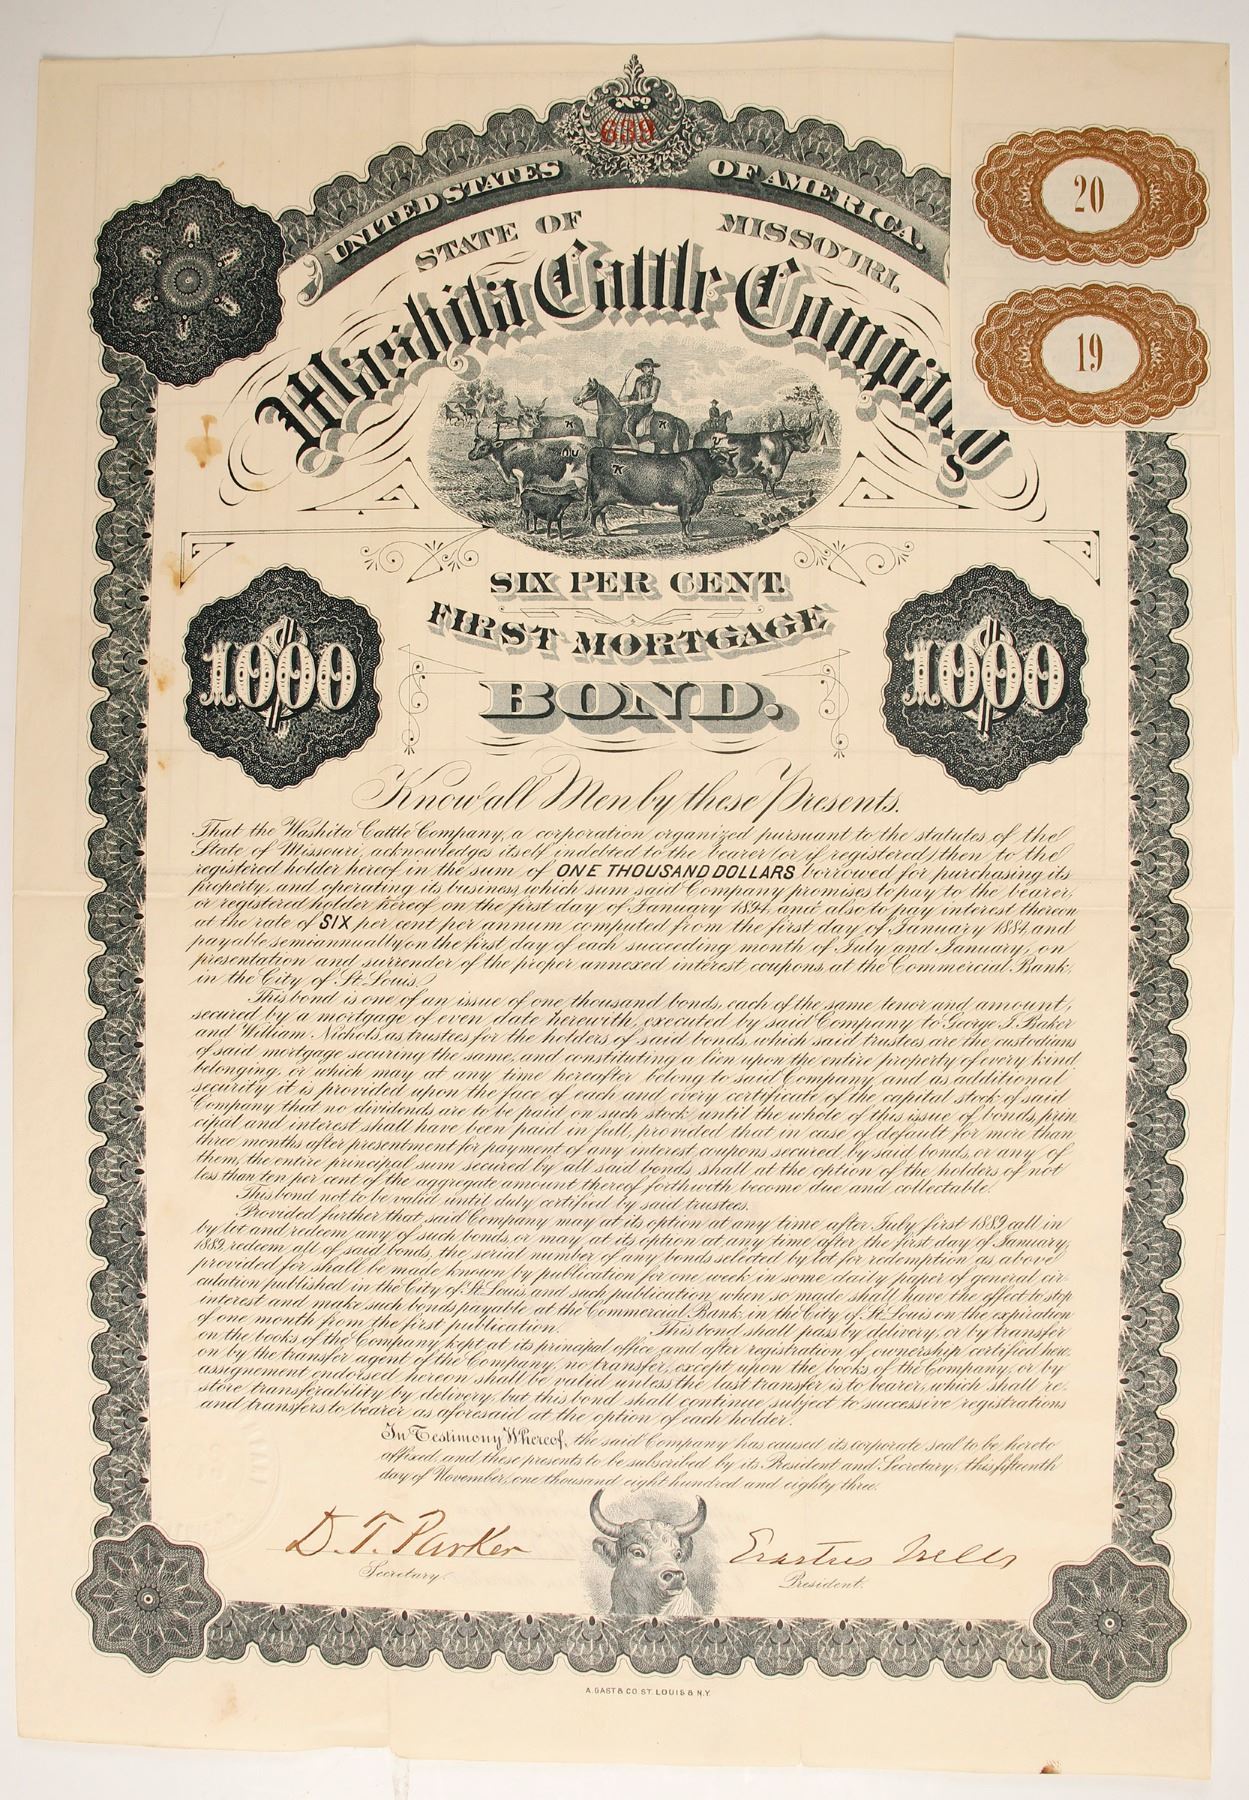 No
639
UNITED STATES OF AMERICA.
STATE OF MISSOURI.
Washita Cattle Company
20
19
SIX PER CENT.
FIRST MORTGAGE
BOND.
1000
1000
Know all Men by these Presents.
That the Washita Cattle Company, a corporation organized pursuant to the statutes of the
State of Missouri, acknowledges itself indebted to the bearer (or if registered) then to the
registered holder hereof in the sum of ONE THOUSAND DOLLARS borrowed for purchasing its
property, and operating its business, which sum said Company promises to pay to the bearer,
or registered holder hereof on the first day of January 1894, and also to pay interest thereon
at the rate of SIX per cent per annum computed from the first day of January 1884, and
payable semiannually on the first day of each succeeding month of July and January, on
presentation and surrender of the proper annexed interest coupons, at the Commercial Bank,
in the City of St. Louis.
This bond is one of an issue of one thousand bonds, each of the same tenor and amount,
secured by a mortgage of even date herewith, executed by said Company to George I. Baker
and William Nichols, as trustees for the holders of said bonds, which said trustees are the custodians
of said mortgage securing the same, and constituting a lien upon the entire property of every kind
belonging, or which may at any time hereafter belong to said Company, and as additional
security it is provided upon the face of each and every certificate of the capital stock of said
Company that no dividends are to be paid on such stock until the whole of this issue of bonds, prin
cipal and interest shall have been paid in full, provided that in case of default for more than
three months after presentment for payment of any interest coupons secured by said bonds, or any of
them, the entire principal sum secured by all said bonds, shall at the option of the holders of not
less than ten per cent of the aggregate amount thereof forthwith become due and collectable.
This bond not to be valid until duly certified by said trustees.
Provided further that said Company may at its option at any time after July first 1889, call in
by lot and redeem any of such bonds, or may at its option at any time after the first day of January,
1889, redeem all of said bonds, the serial number of any bonds selected by lot for redemption as above
provided for shall be made known by publication for one week in some daily paper of general cir-
culation published in the City of St. Louis, and such publication, when so made shall have the effect to stop
interest and make such bonds payable at the Commercial Bank, in the City of St. Louis on the expiration
of one month from the first publication. This bond shall pass by delivery, or by transfer
on the books of the Company kept at its principal office and after registration of ownership certified here-
on by the transfer agent of the Company, no transfer, except upon the books of the Company, or by
assignement endorsed hereon shall be valid unless the last transfer is to bearer, which shall re-
store transferability by delivery, but this bond shall continue subject to successive registrations
and transfers to bearer as aforesaid at the option of each holder.
In Testimony Whereof, the said Company has caused its corporate seal to be hereto
affixed, and these presents to be subscribed by its President and Secretary, this fifteenth
day of November, one thousand eight hundred and eighty three.
D. T. Parker
Erastus Wells
Secretary.
President.
A. GAST & CO. ST. LOUIS & N.Y.